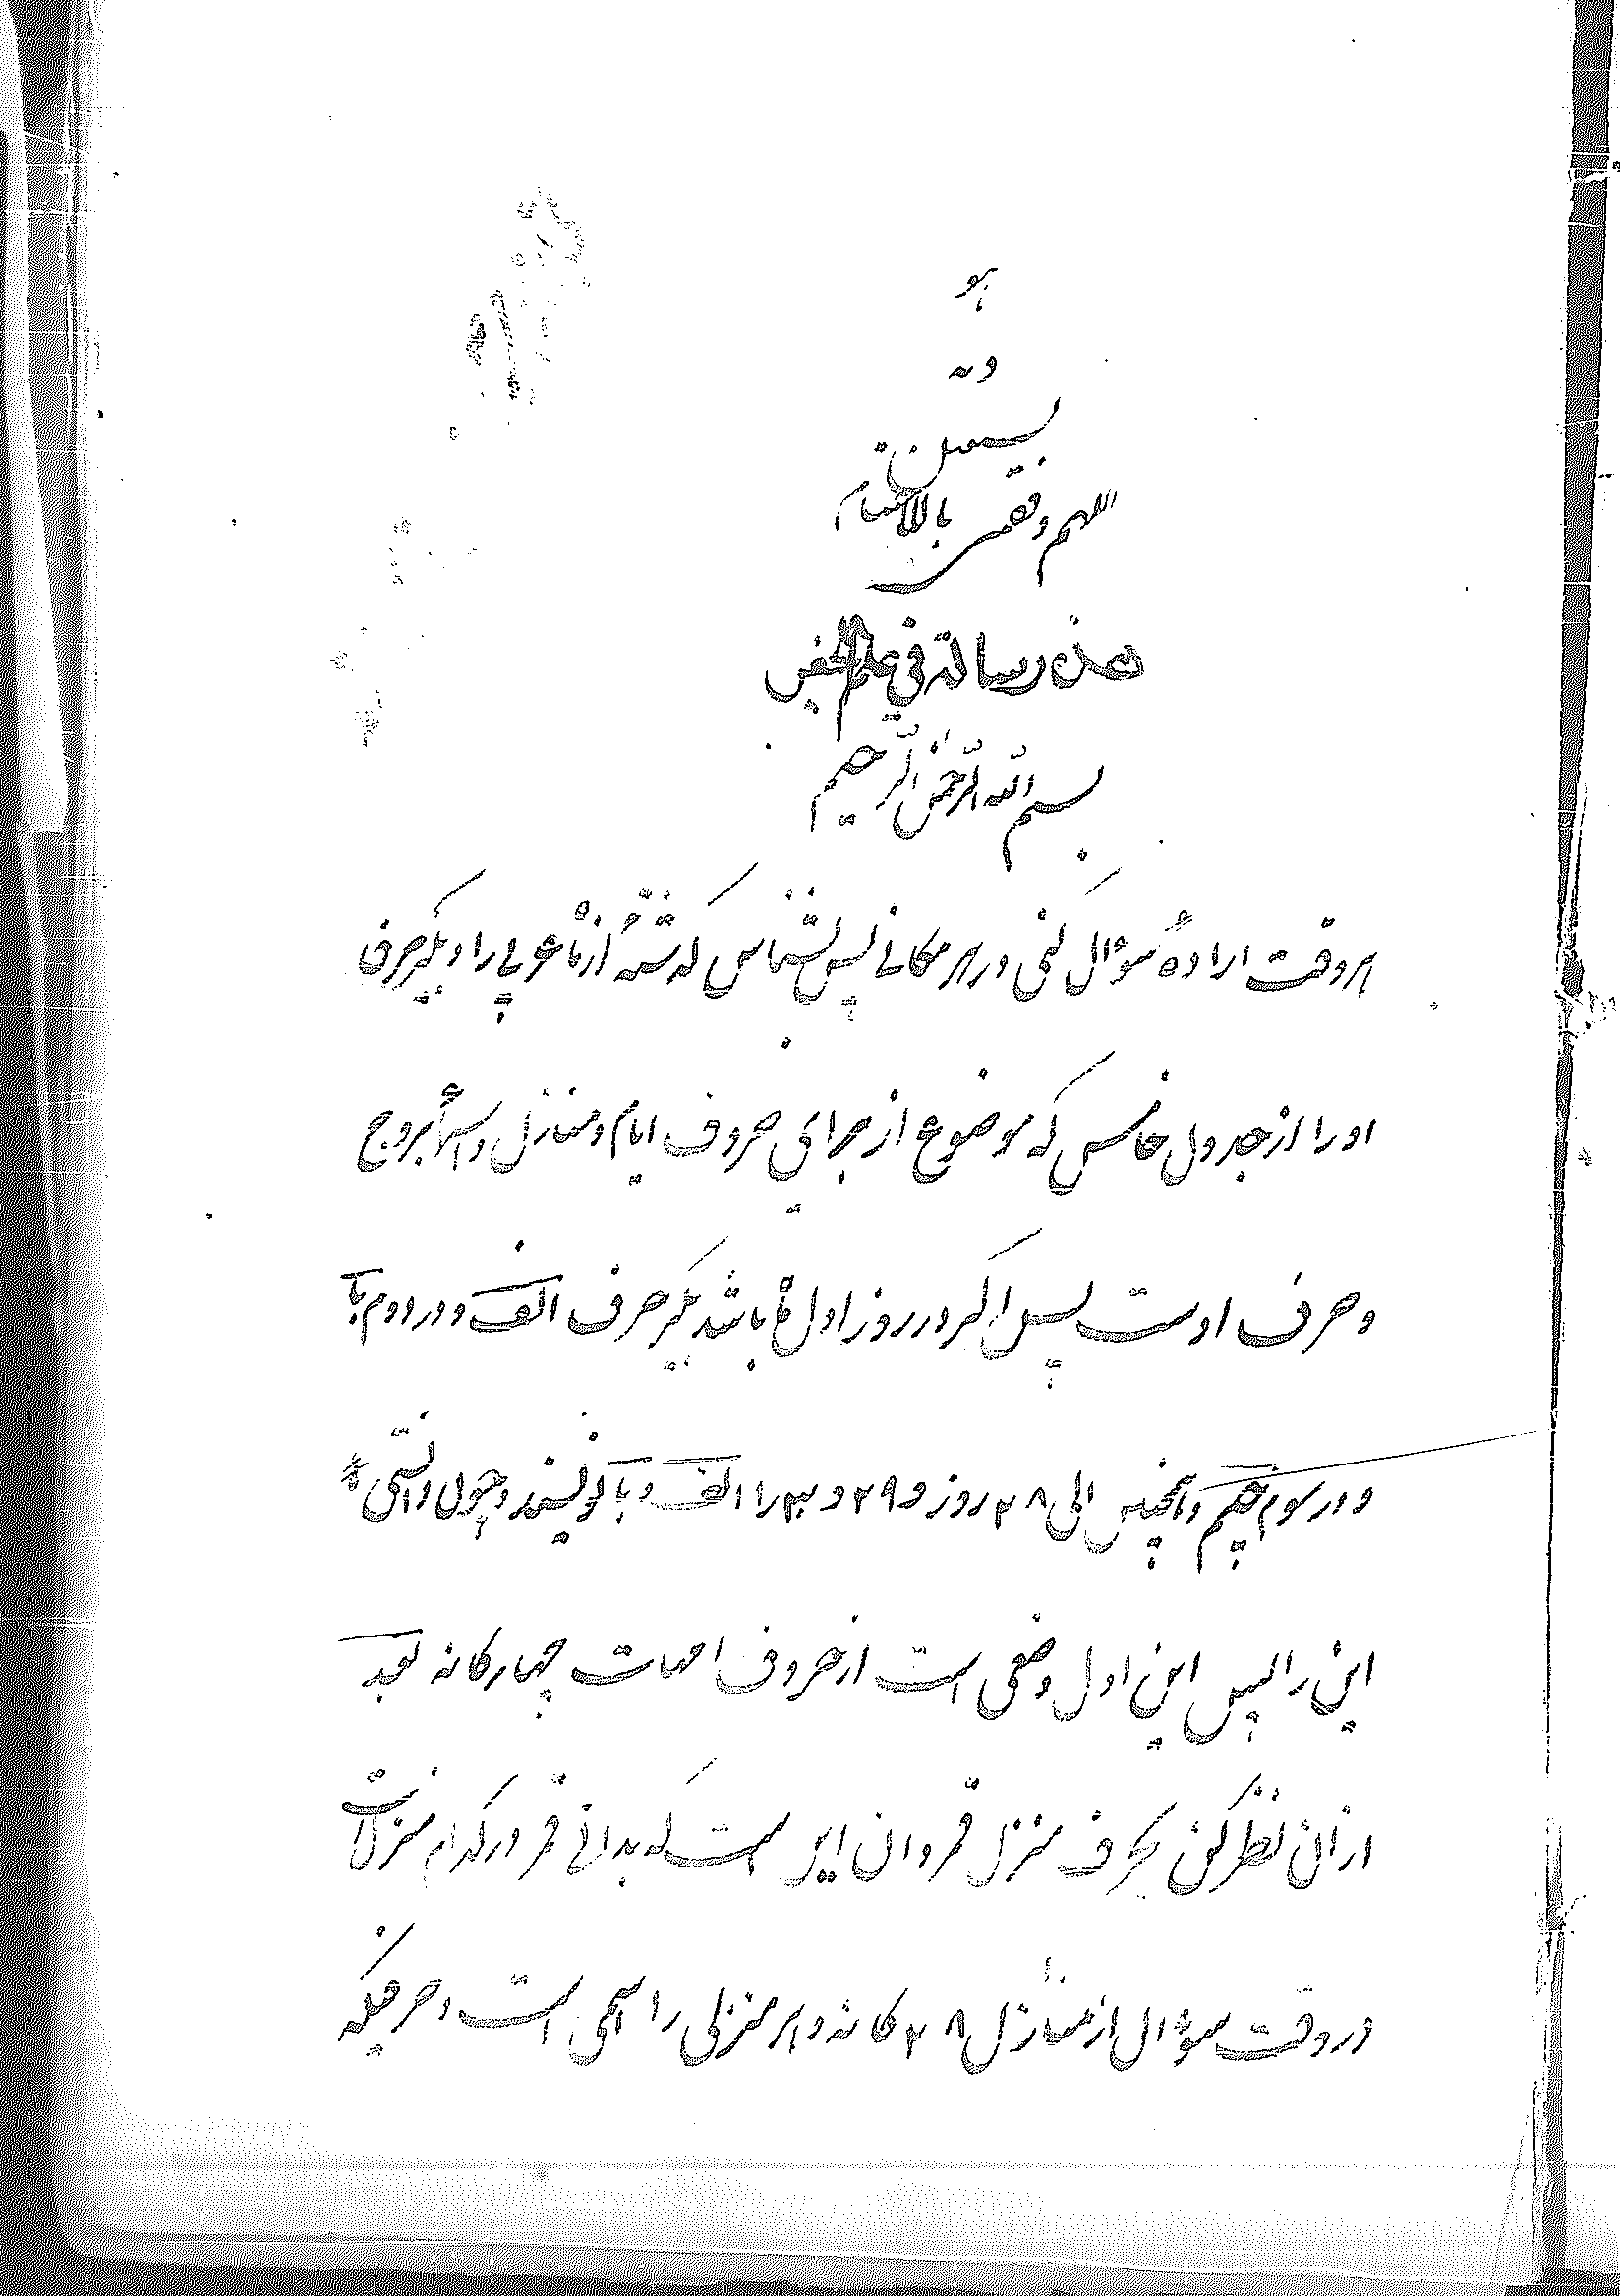 هو
وبه
نستعین
اللهم وفقنی بالاتمام
هذه رسالة في علم الجفر
بسم الله الرّحمن الرّحیم
هروقت ارادهٔ سؤال کنی در هر مکانے پس بشناس که گذشته از ماه عربی را و بگیر حرف
او را از جدول خامس که موضوع از برای حروف ایام و منازل و اسماء بروج
و حرف اوست پس اگر در روز اول ماه باشد بگیر حرف الف و در دوم با
و در سوم جیم و همچنین الی ۲۸ روز و ۲۹ و ۳۰ را الف و با نویسند و چون دانستی
این را پس این اول وضعی است از حروف امهات چهارکانه بعد
از آن نظر کن بحرف منزل قمر و آن این است که بدانے قمر در کدام منزلست
در وقت سؤال از منازل ۲۸ کانه و هر منزلی را اسمی است و حرفیکه